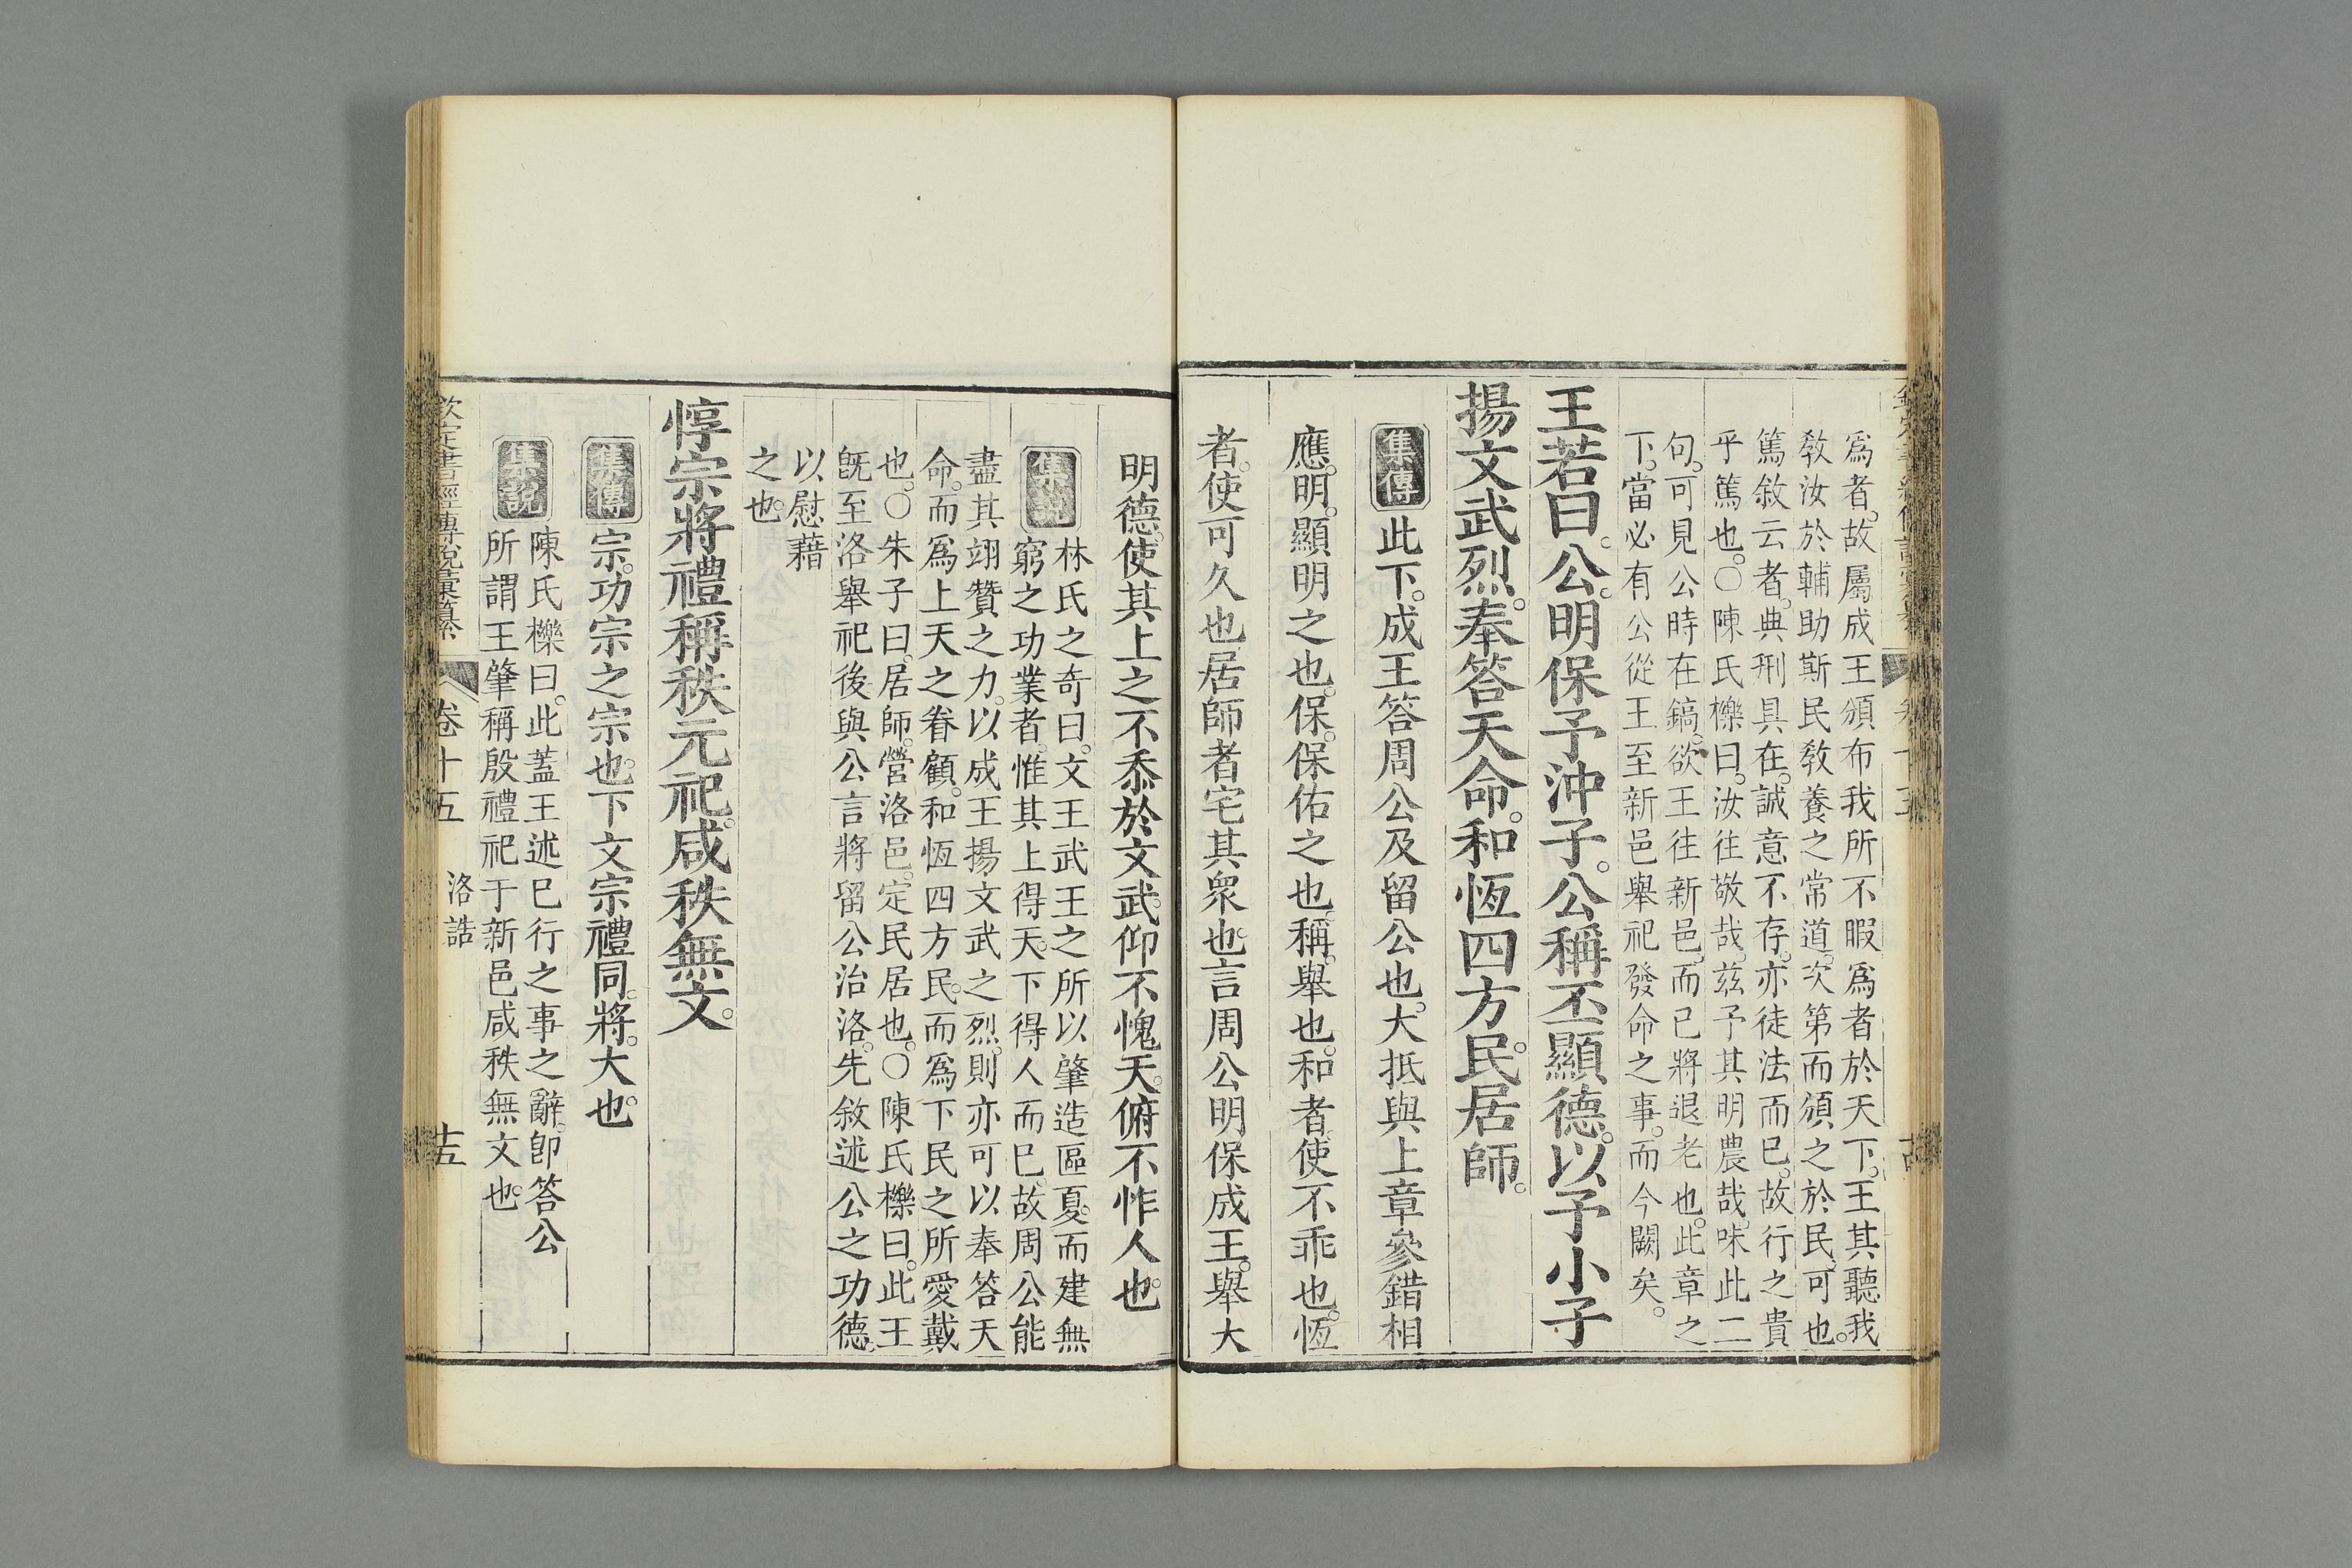 爲者。故屬成王頒布我所不暇爲者於天下。王其聽我
敎汝於輔助斯民敎養之常道。次第而頒之於民。可也。
篤敘云者。典刑具在。誠意不存。亦徒法而已。故行之貴
乎篤也。○陳氏櫟曰。汝往敬哉。茲予其明農哉。味此二
句。可見公時在鎬。欲王往新邑。而已將退老也。此章之
下。當必有公從王至新邑舉祀發命之事。而今闕矣。
王若曰。公。明保予沖子。公稱丕顯德。以予小子
揚文武烈。奉答天命。和恆四方民。居師。
集傳
此下。成王答周公及留公也。大抵與上章參錯相
應。明。顯明之也。保。保佑之也。稱。舉也。和者。使不乖也。恆
者。使可久也。居師者。宅其衆也。言周公明保成王。舉大
明德。使其上之不忝於文武。仰不愧天。俯不怍人也。
集說
林氏之奇曰。文王武王之所以肇造區夏。而建無
窮之功業者。惟其上得天。下得人而已。故周公能
盡其翊贊之力。以成王揚文武之烈。則亦可以奉答天
命。而爲上天之眷顧。和恆四方民。而爲下民之所愛戴
也。○朱子曰。居師。營洛邑。定民居也。○陳氏櫟曰。此王
旣至洛舉祀後。與公言將留公治洛。先敘述公之功德。
以慰藉
之也。
惇宗將禮。稱秩元祀。咸秩無文。
集傳
宗。功宗之宗也。下文宗禮同。將。大也。
集說
陳氏櫟曰。此蓋王述已行之事之辭。卽答公
所謂王肇稱殷禮祀于新邑咸秩無文也。
欽定書經傳說彙纂
卷十五
洛誥
十五